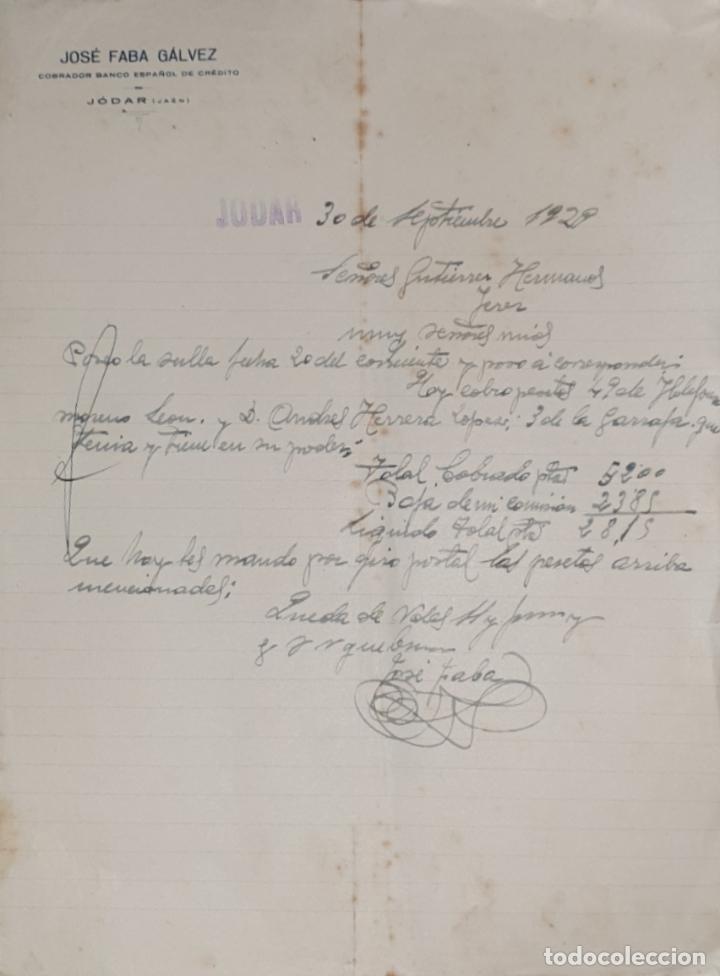 JOSÉ FABA GÁLVEZ
COBRADOR BANCO ESPAÑOL DE CRÉDITO
JÓDAR (JAÉN)
JODAR 30 de Septiembre 1929
Señores Gutiérrez Hermanos
Jerez
muy señores mios
Poseo la sulla fecha 20 del corriente y paso á corresponder;
Hoy cobro pesetas 49 de Ildefonso
moreno Leon. y D. Andres Herrera Lopez; 3 de la Garrafa que
tenia y tiene en su poder;
Total Cobrado ptas 52'00
Baja de mi comision 23'85
Liquido total pts 28,15
Que hoy les mando por giro postal las pesetas arriba
mencionadas;
Queda de Vdes
José Faba
todocoleccion